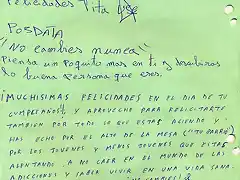 Felicidades Tita
POSDATA
"No cambies nunca"
Piensa un poquito mas en ti y descubriras
lo buena persona que eres.
¡MUCHISIMAS FELICIDADES EN EL DIA DE TU
CUMPLEAÑOS! Y APROVECHO PARA FELICITARTE
TAMBIEN POR TODO LO QUE ESTAS ACIENDO Y
HAS ECHO POR EL ALTO DE LA MESA ("TU BARRIO")
POR LOS JOVENES Y MENOS JOVENES QUE ESTAS
ALENTANDO A NO CAER EN EL MUNDO DE LAS
ADICCIONES Y SABER VIVIR EN UNA VIDA SANA.